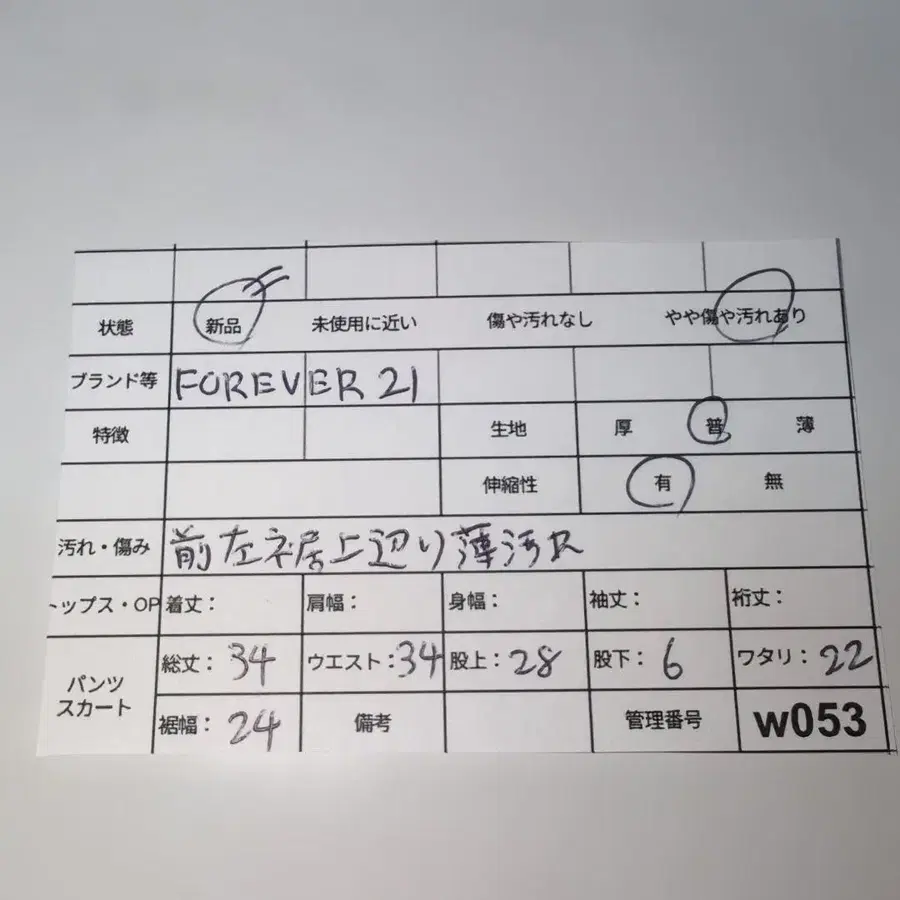 状態 新品 未使用に近い 傷や汚れなし やや傷や汚れあり
ブランド等 FOREVER 21
特徴 生地 厚 普 薄
伸縮性 有 無
汚れ・傷み 前左裾上辺り薄汚れ
トップス・OP 着丈： 肩幅： 身幅： 袖丈： 裄丈：
パンツ 総丈：34 ウエスト：34 股上：28 股下：6 ワタリ：22
スカート 裾幅：24 備考 管理番号 w053